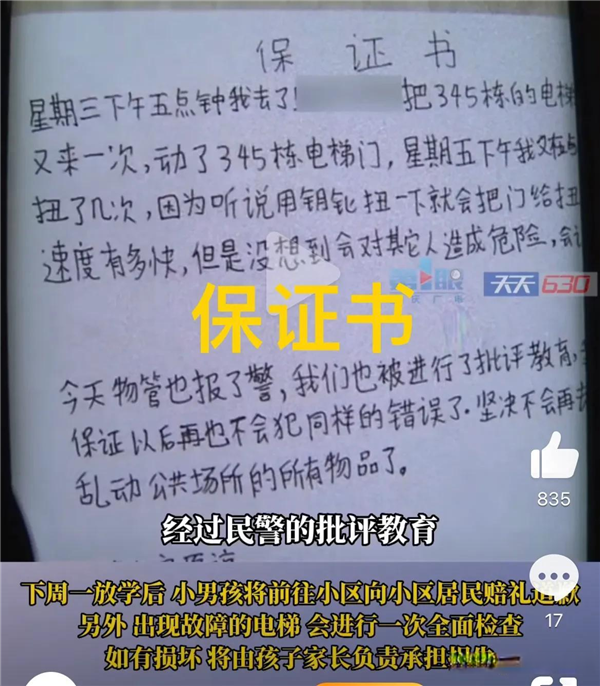 保 证 书
星期三下午五点钟我去了 把345栋的电梯
又来一次,动了345栋电梯门,星期五下午我又在
扭了几次,因为听说用钥匙扭一下就会把门给扭
速度有多快,但是没想到会对其它人造成危险,会
天天630
保证书
今天物管也报了警,我们也被进行了批评教育,
保证以后再也不会犯同样的错误了.坚决不会再去
乱动公共场所的所有物品了。
835
经过民警的批评教育
17
下周一放学后 小男孩将前往小区向小区居民赔礼道歉
另外 出现故障的电梯 会进行一次全面检查
如有损坏 将由孩子家长负责承担